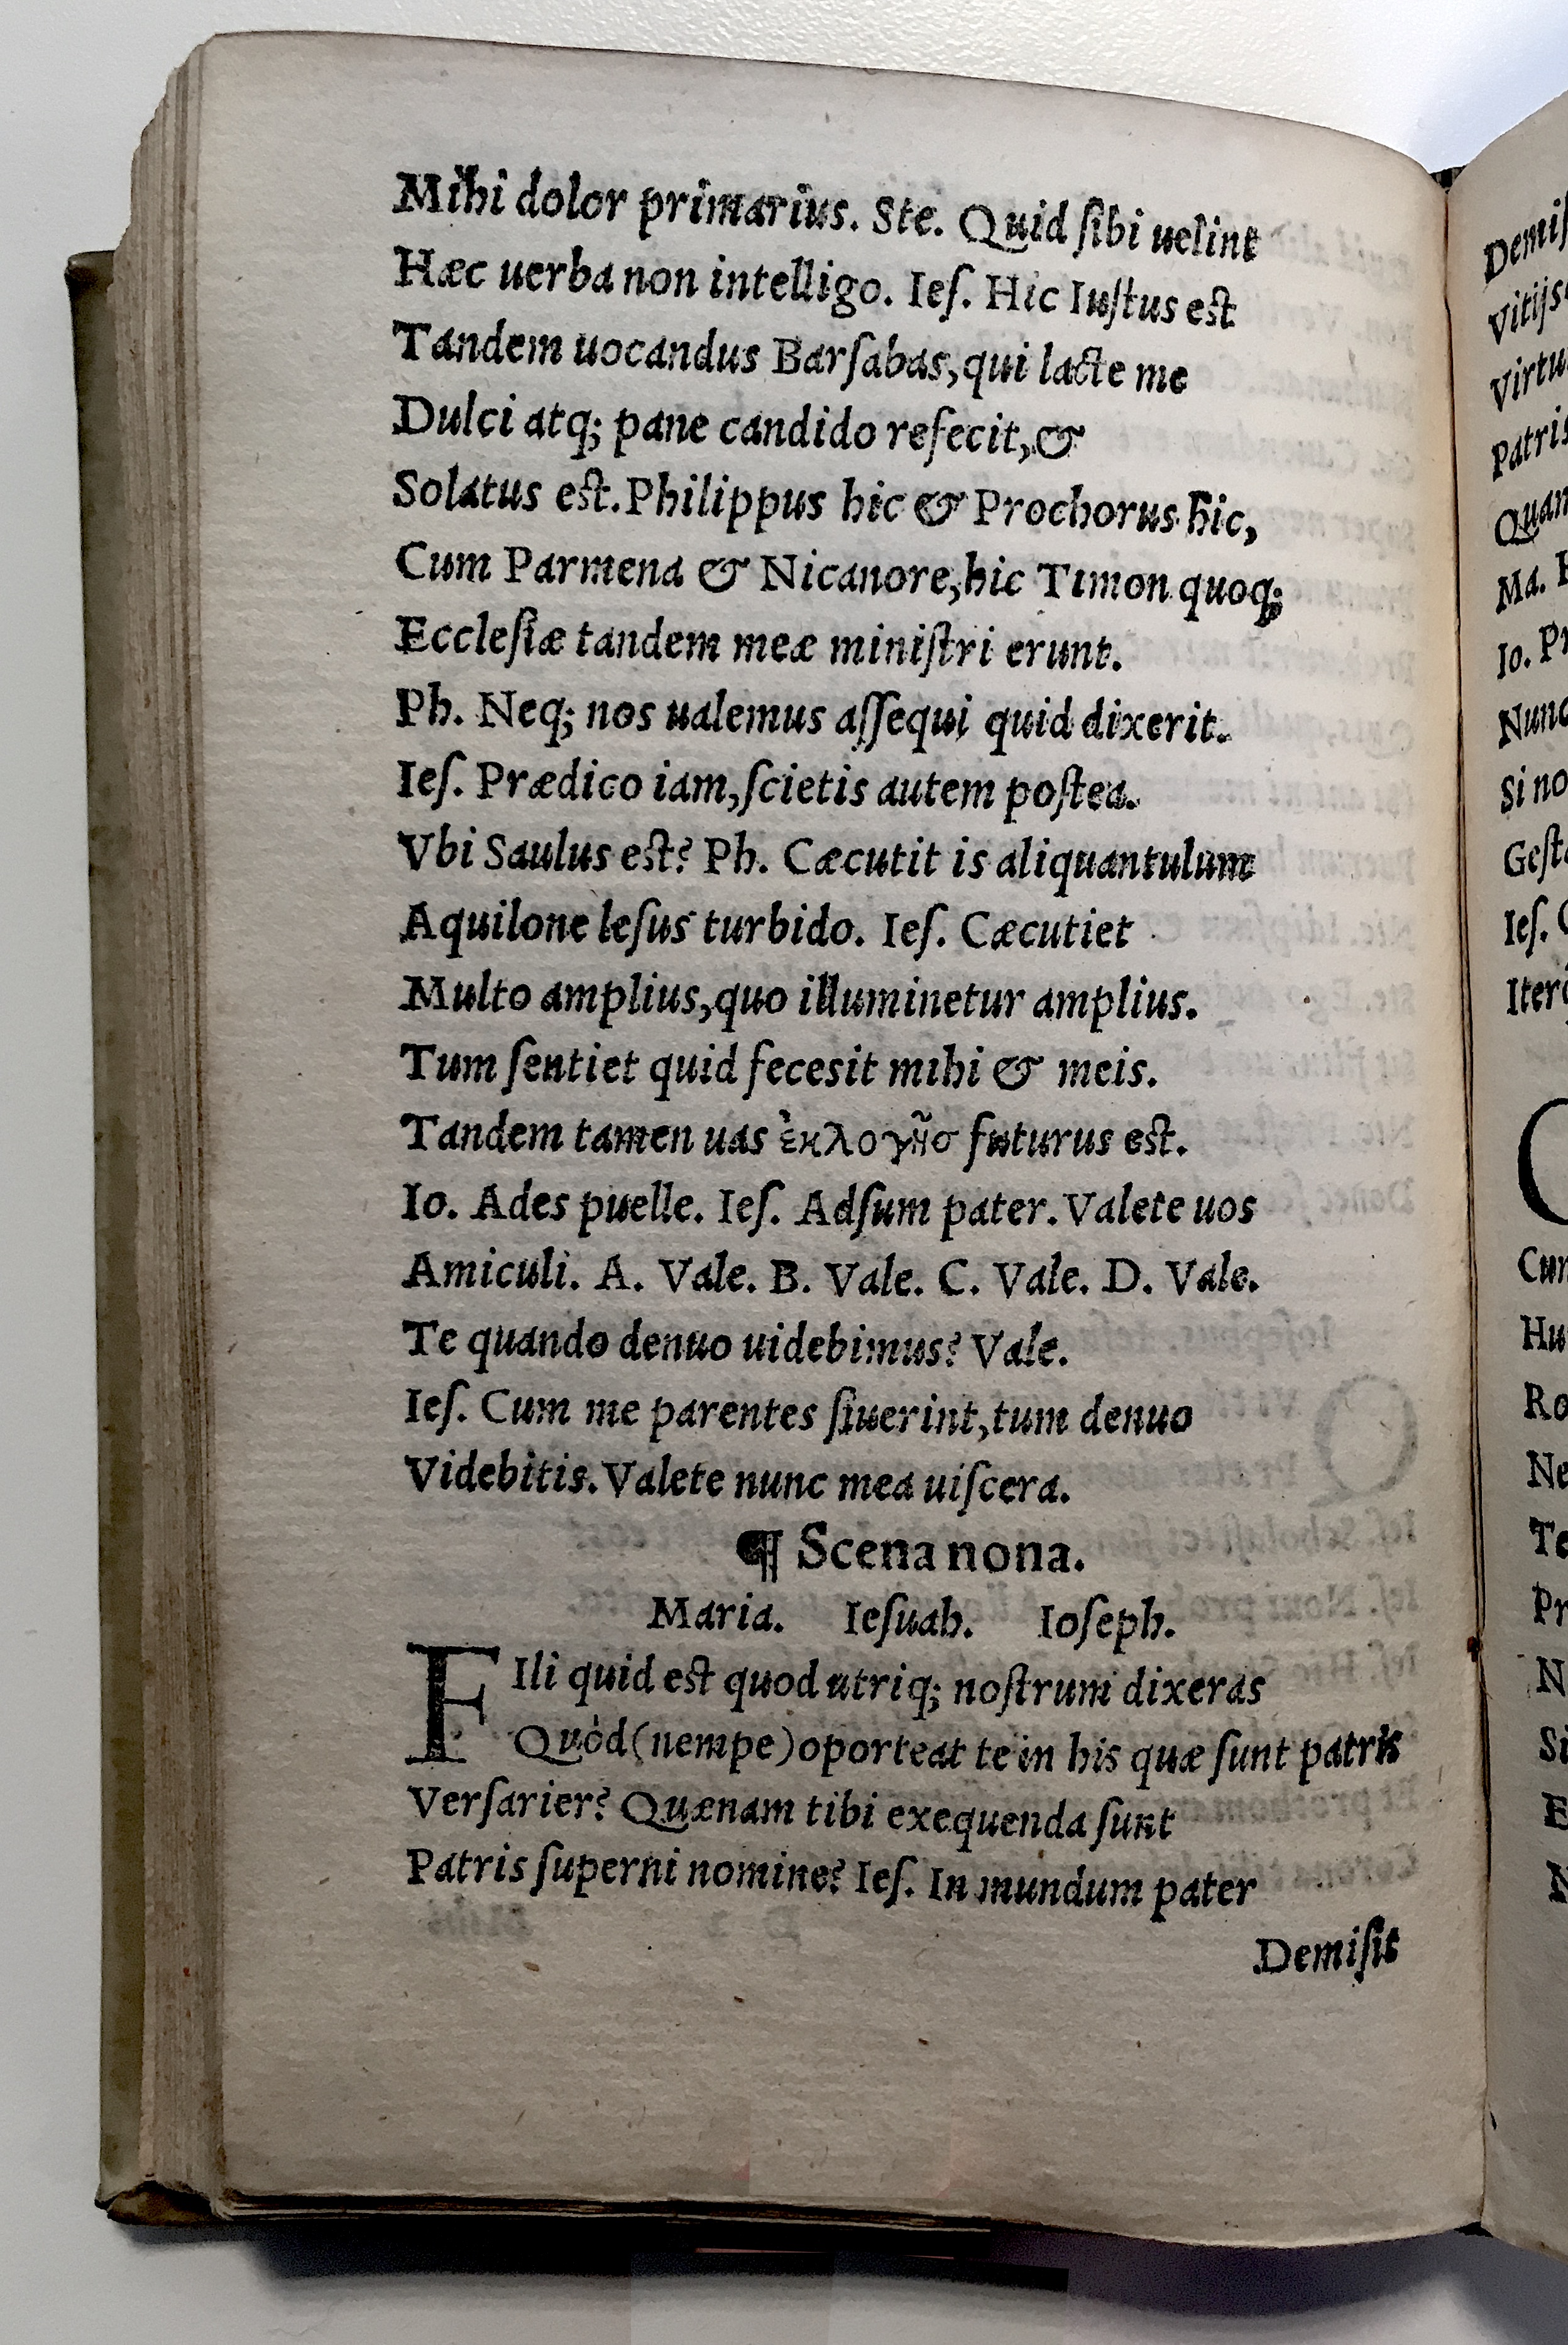 Mihi dolor primarius. Ste. Quid ſibi uelint
Hæc uerba non intelligo. Ieſ. Hic Iuſtus eſt
Tandem uocandus Barſabas, qui lacte me
Dulci atq; pane candido refecit, &
Solatus eſt. Philippus hic & Prochorus hic,
Cum Parmena & Nicanore, hic Timon quoq;
Eccleſiæ tandem meæ miniſtri erunt.
Ph. Neq; nos ualemus aſſequi quid dixerit.
Ieſ. Prædico iam, ſcietis autem poſtea.
Vbi Saulus eſt? Ph. Cæcutit is aliquantulum
Aquilone leſus turbido. Ieſ. Cæcutiet
Multo amplius, quo illuminetur amplius.
Tum ſentiet quid feceſit mihi & meis.
Tandem tamen uas ἐκλογῆσ futurus eſt.
Io. Ades puelle. Ieſ. Adſum pater. Valete uos
Amiculi. A. Vale. B. Vale. C. Vale. D. Vale.
Te quando denuo uidebimus? Vale.
Ieſ. Cum me parentes ſiuerint, tum denuo
Videbitis. Valete nunc mea uiſcera.
¶ Scena nona.
Maria. Ieſuah. Ioſeph.
FIli quid eſt quod utriq; noſtrum dixeras
Quòd (nempe) oporteat te in his quæ ſunt patris
Verſarier? Quænam tibi exequenda ſunt
Patris ſuperni nomine? Ieſ. In mundum pater
Demiſit
Demiſ
Vitijs
Virtu
Patris
Quan
Ma.
Io. Pr
Nunc
Si no
Geſt
Ieſ.
Iter
Cum
Hu
Ro
Ne
Te
Pr
N
Si
E
N